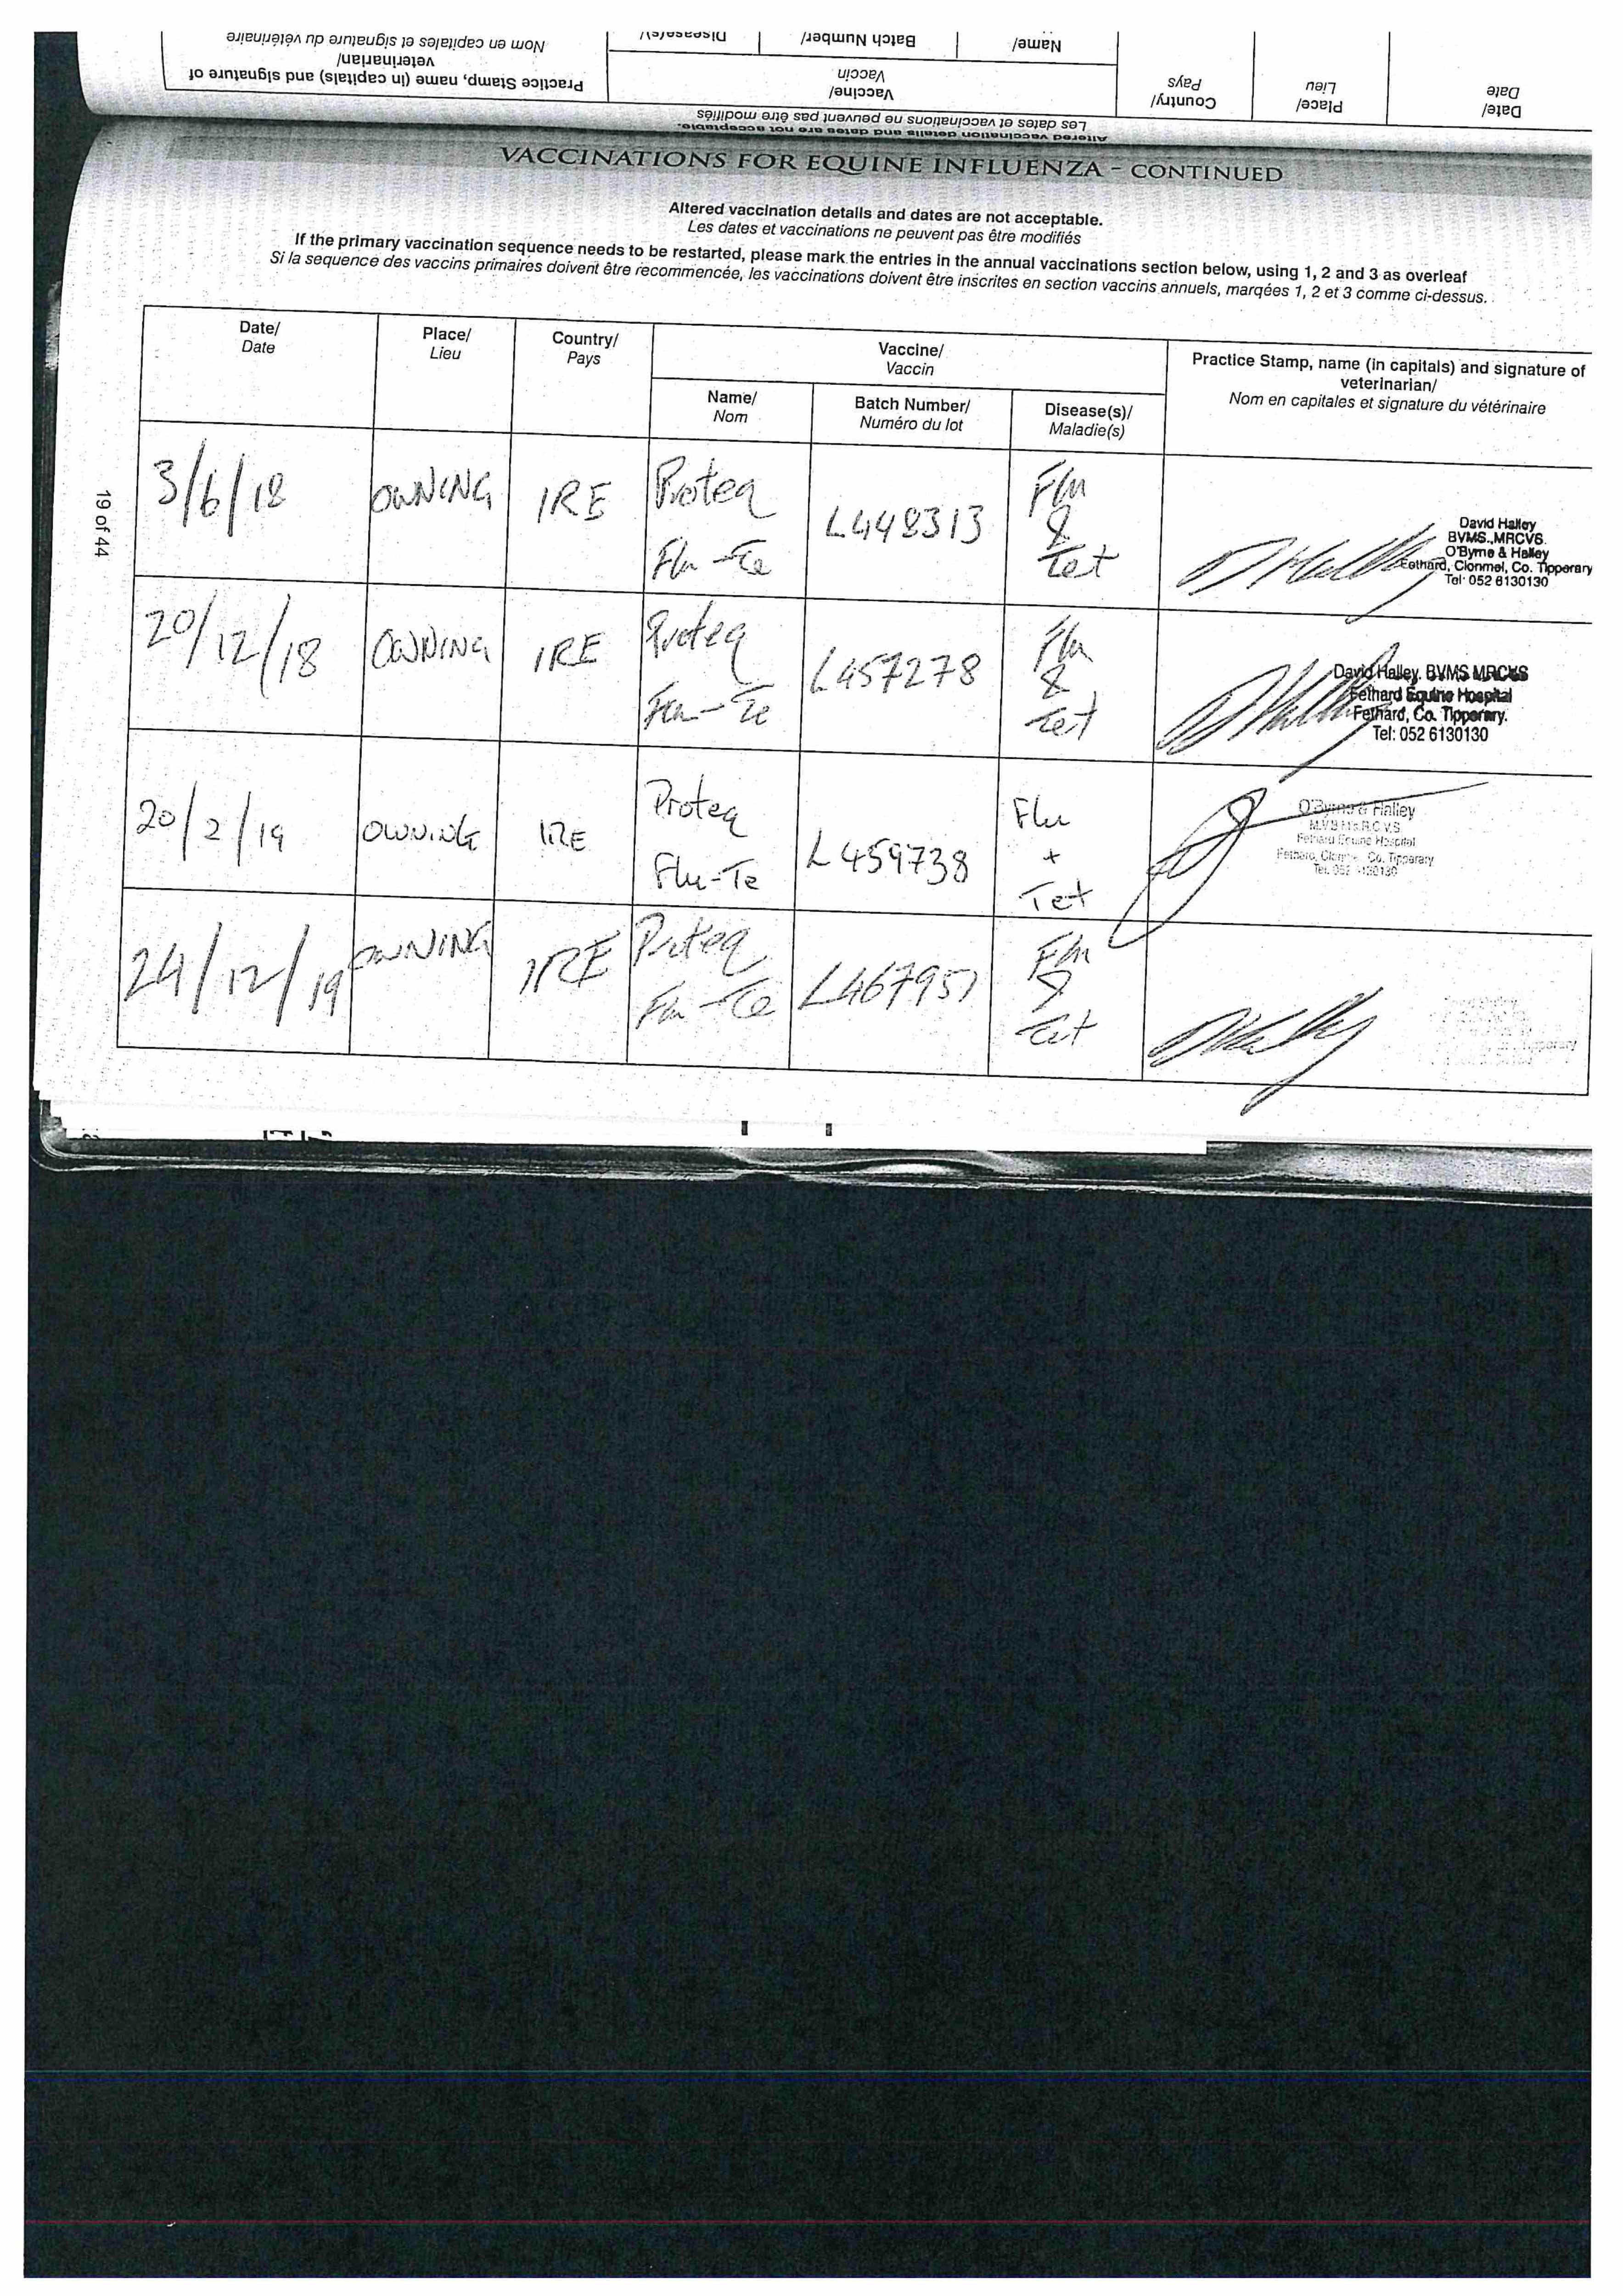 Nom en capitales et signature du vétérinaire
veterinarian/
Practice Stamp, name (in capitals) and signature of
Disease(s)/
Batch Number/
Name/
Vaccin
Vaccine/
Country/
Pays
Place/
Lieu
Date/
Date
Les dates et vaccinations ne peuvent pas être modifiés
Altered vaccination details and dates are not acceptable.
VACCINATIONS FOR EQUINE INFLUENZA - CONTINUED
Altered vaccination details and dates are not acceptable.
Les dates et vaccinations ne peuvent pas être modifiés
If the primary vaccination sequence needs to be restarted, please mark the entries in the annual vaccinations section below, using 1, 2 and 3 as overleaf
Si la sequence des vaccins primaires doivent être recommencée, les vaccinations doivent être inscrites en section vaccins annuels, marqées 1, 2 et 3 comme ci-dessus.
Date/
Date
Place/
Lieu
Country/
Pays
Vaccine/
Vaccin
Name/
Nom
Batch Number/
Numéro du lot
Disease(s)/
Maladie(s)
Practice Stamp, name (in capitals) and signature of
veterinarian/
Nom en capitales et signature du vétérinaire
19 of 44
3/6/18
OWNING
IRE
Proteq
Flu-Te
L448313
Flu
&
Tet
David Halley
BVMS.,MRCVS.
O'Byrne & Halley
Fethard, Clonmel, Co. Tipperary
Tel: 052 6130130
20/12/18
OWNING
IRE
Proteq
Flu-Te
L457278
Flu
&
Tet
David Halley. BVMS MRCVS
Fethard Equine Hospital
Fethard, Co. Tipperary.
Tel: 052 6130130
20/2/19
OWNING
IRE
Proteq
Flu-Te
L459738
Flu
+
Tet
O'Byrne & Halley
Fethard Equine Hospital
Fethard, Co. Tipperary
24/12/19
OWNING
IRE
Proteq
Flu-Te
L467951
Flu
&
Tet
Tipperary